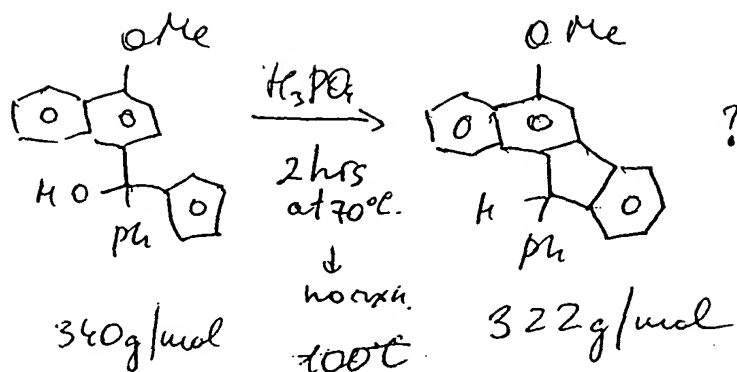 OMe
HO
Ph
340g/mol
H₃PO₄
2hrs
at 70°C.
↓
no rxn.
100°C
OMe
H
Ph
322g/mol
?